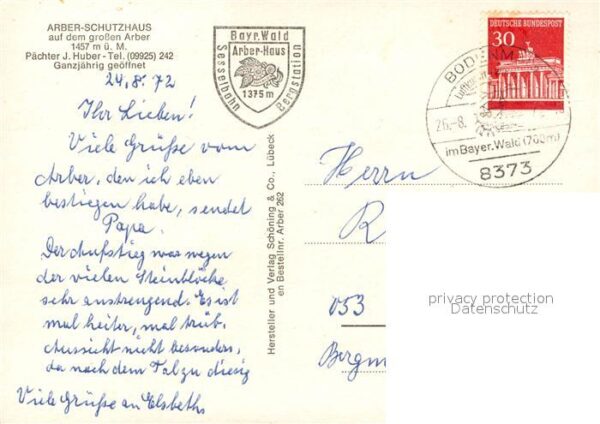 ARBER-SCHUTZHAUS
auf dem großen Arber
1457 m ü. M.
Pächter J. Huber - Tel. (09925) 242
Ganzjährig geöffnet
24.8.72
Ihr Lieben!
Viele Grüße vom
Arber, den ich eben
bestiegen habe, sendet
Papa.
Der Aufstieg war wegen
der vielen Steinblöcke
sehr anstrengend. Es ist
mal heiter, mal trüb.
Aussicht nicht besonders,
da nach dem Tal zu diesig
Viele Grüße an Elsbeths
Bayr. Wald
Arber-Haus
1375 m
Sesselbahn
Bergstation
Hersteller und Verlag Schöning & Co., Lübeck
en Bestellnr. Arber 262
30
DEUTSCHE BUNDESPOST
BODENM
26.-8.
im Bayer. Wald (700m)
8373
Herrn
R
053
Bergm
privacy protection
Datenschutz